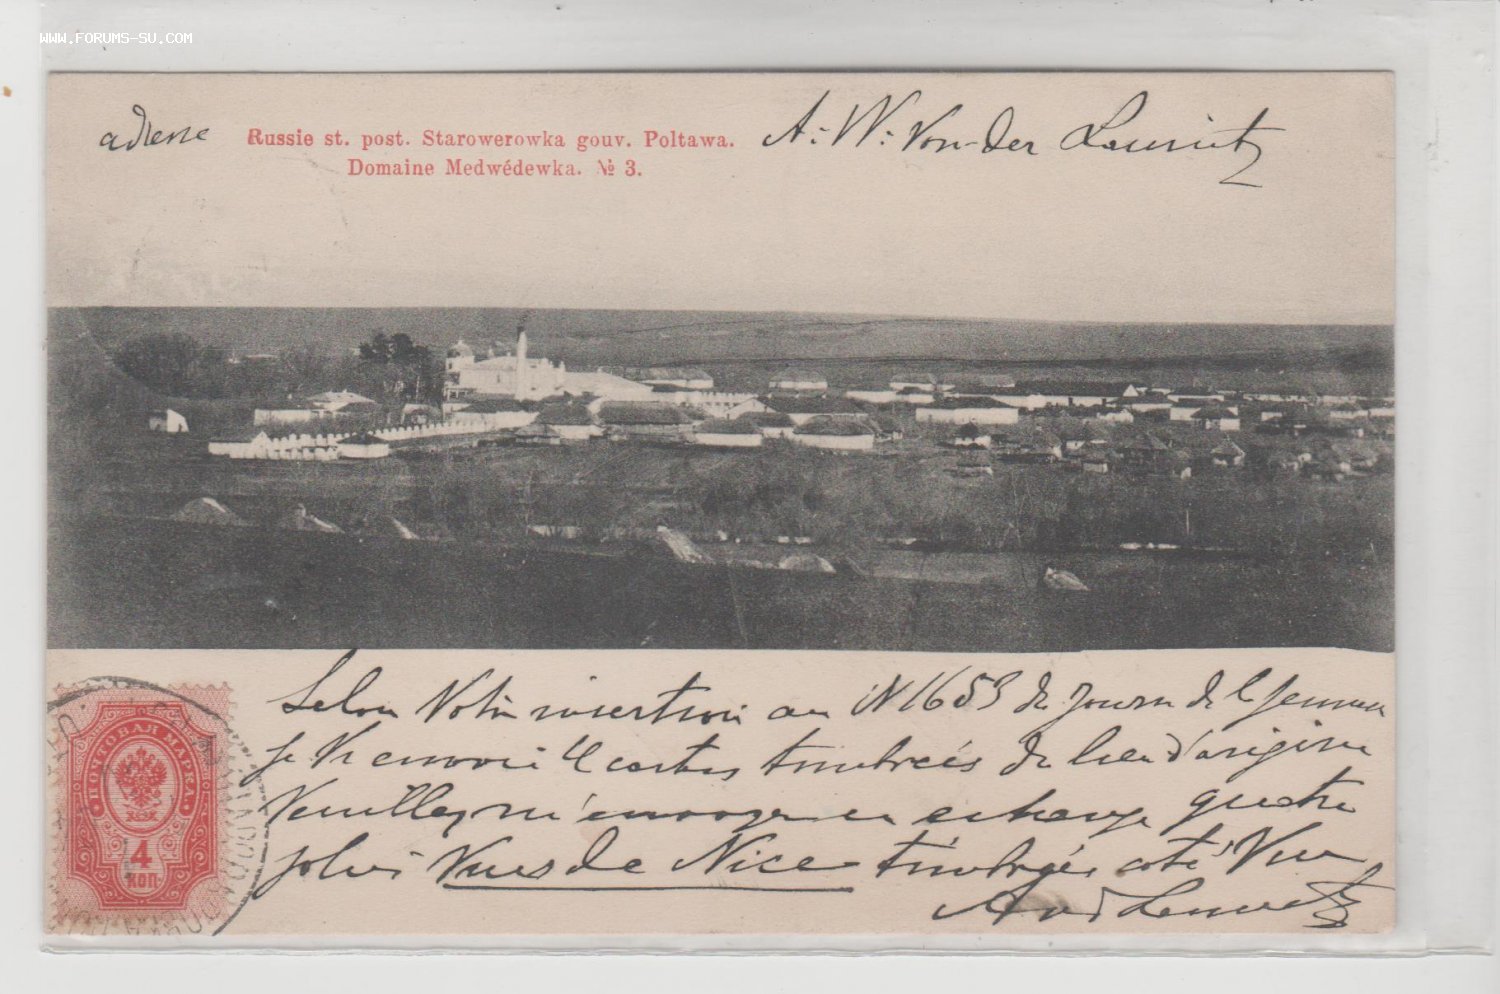 WWW.FORUMS-SU.COM
adresse
Russie st. post. Starowerowka gouv. Poltawa.
Domaine Medwédewka. № 3.
A. W. Von-der Launitz
Selon Votre insertion au N 1653 du Journ de 
je Vs envoie 4 cartes timbrées du lieu d'origine
Veuillez m'envoyer en echange quatre
jolies Vues de Nice timbrées coté Vue
ПОЧТОВАЯ МАРКА
4
КОП.